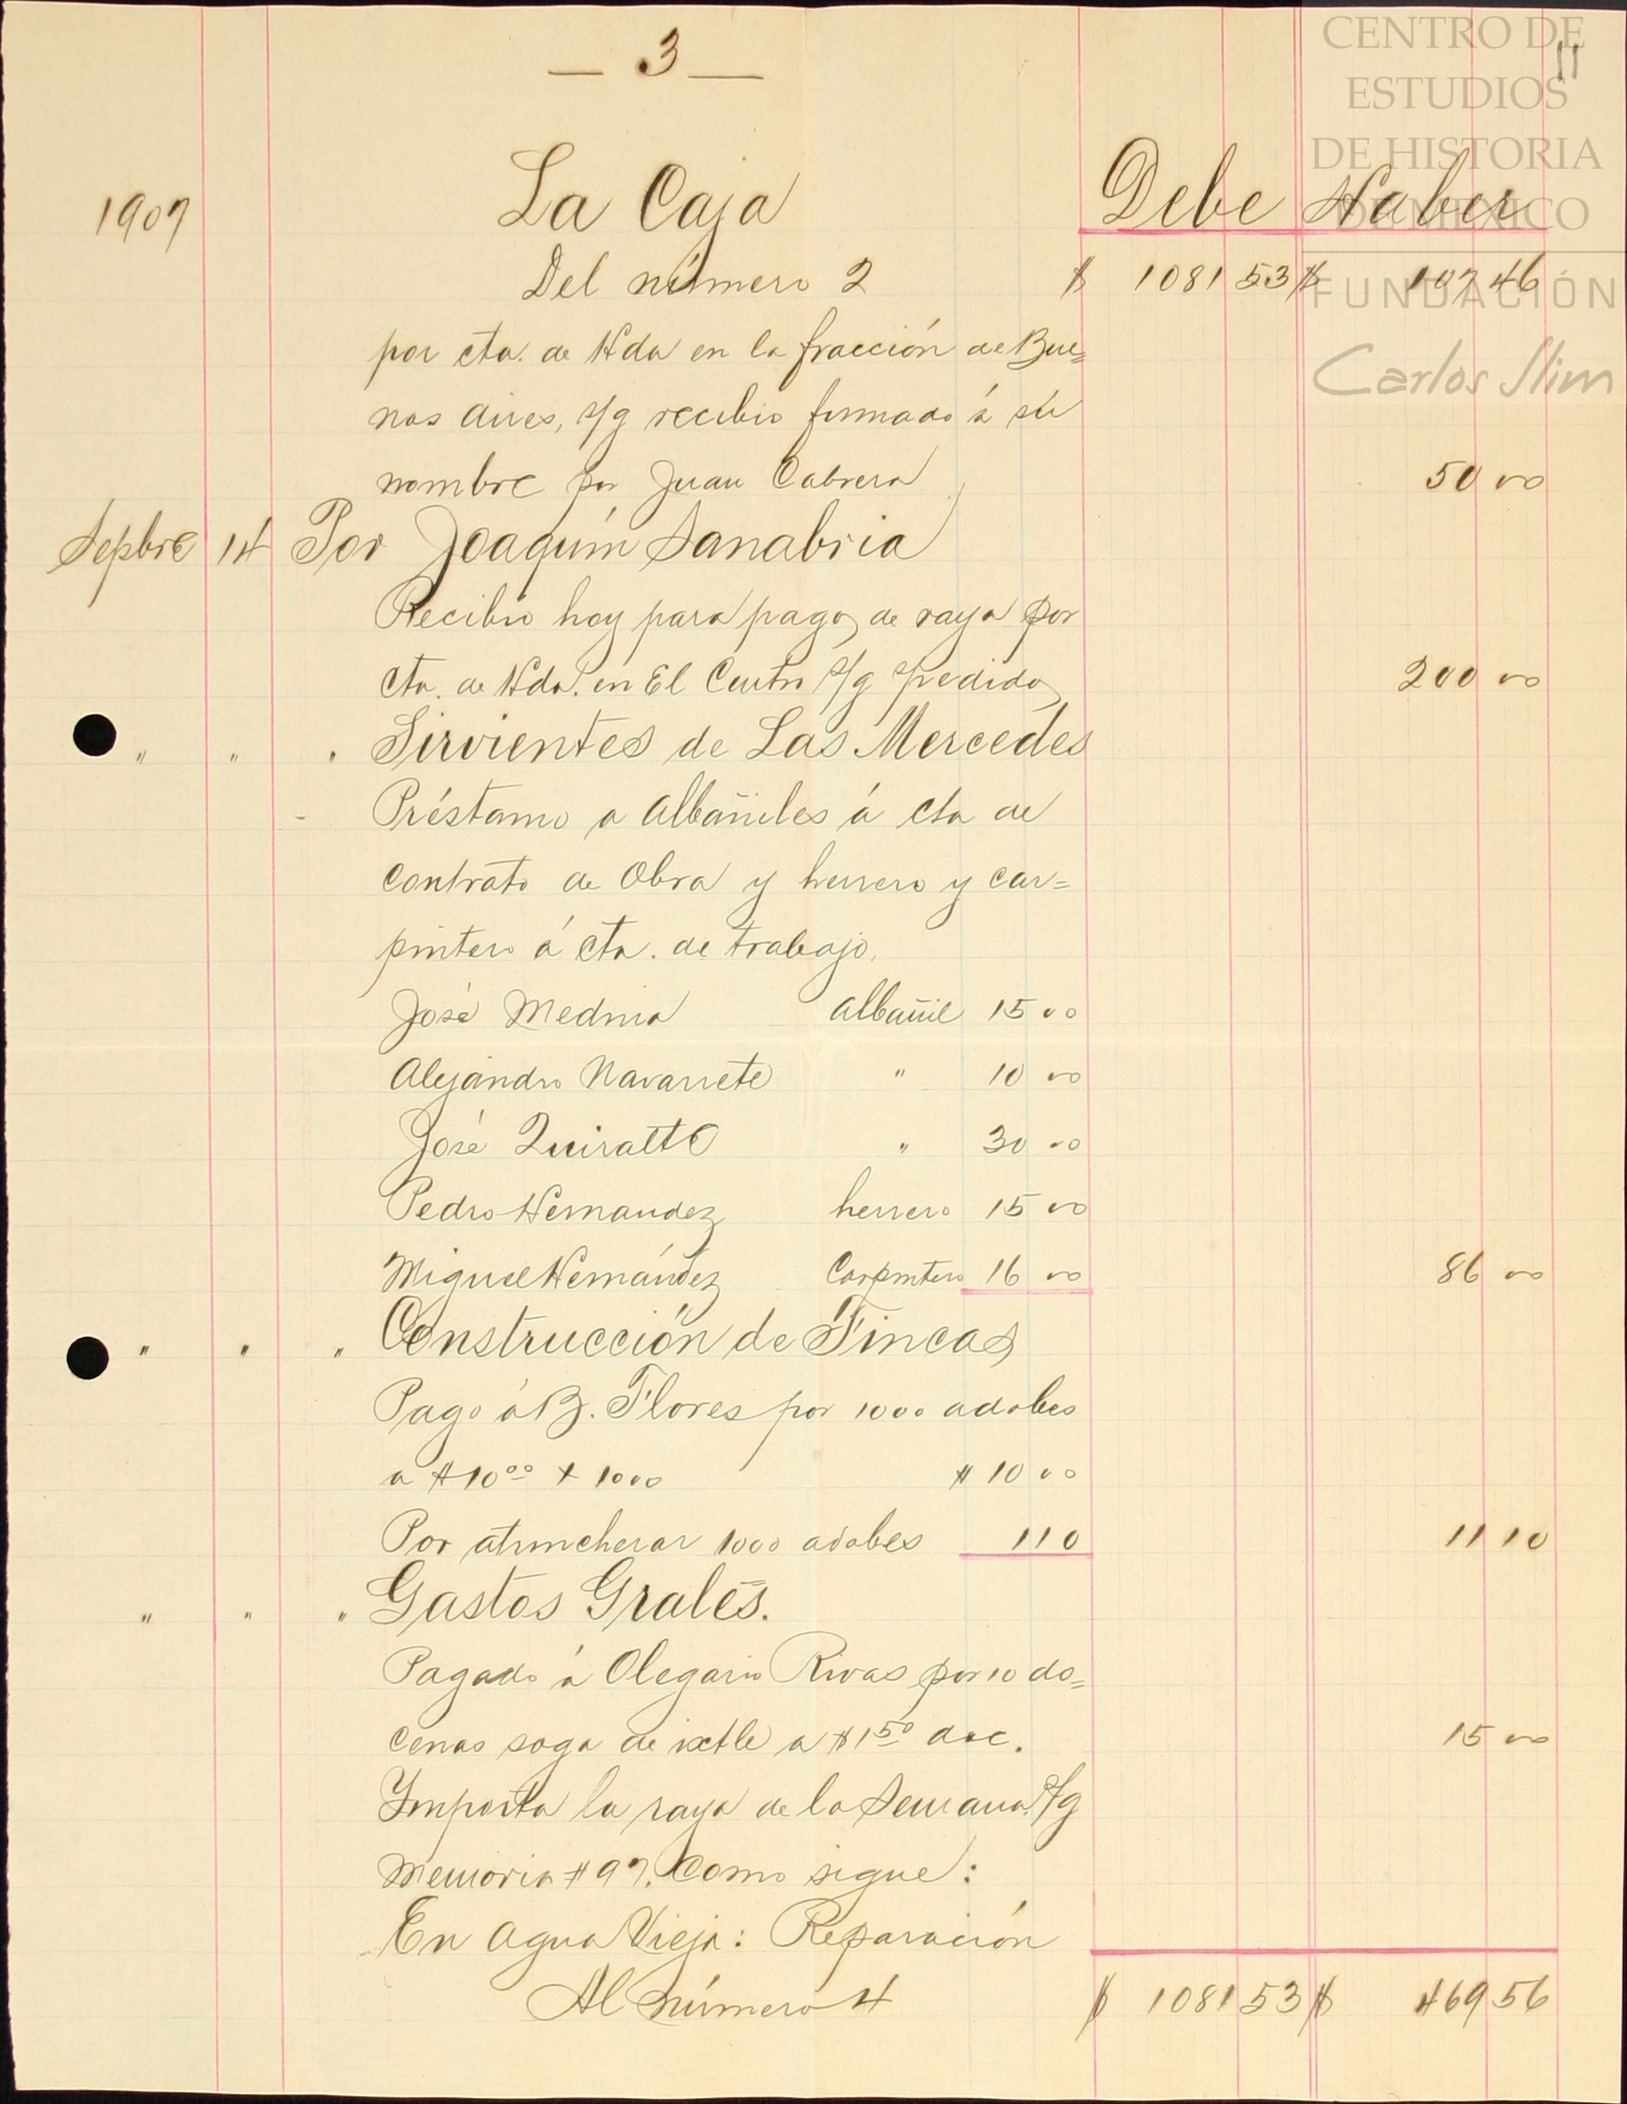 — 3 —
11
1907 La Caja Debe Haber
Del número 2 $ 1081 53 $ 107 46
por cta. de Hda en la fracción de Bue=
nos Aires, s/g recibo firmado á su
nombre por Juan Cabrera 50 00
Sepbre 14 Por Joaquím Sanabria
Recibió hoy para pago de raya por
cta. de Hda. en El Centro s/g pedido 200 00
" " " Sirvientes de Las Mercedes
Préstamo a albañiles á cta de
contrato de Obra y herrero y car=
pintero á cta. de trabajo.
José Medina albañil 15 00
Alejandro Navarrete " 10 00
José Quiratte " 30 00
Pedro Hernandez herrero 15 00
Miguel Hernández Carpintero 16 00 86 00
" " " Construcción de Fincas
Pago á B. Flores por 1000 adobes
a $10 00 x 1000 $ 10 00
Por atrincherar 1000 adobes 1 10 11 10
" " " Gastos Grales.
Pagado á Olegario Rivas por 10 do=
cenas soga de ixtle a $1 50 doc. 15 00
Ymporta la raya de la Semana s/g
Memoria # 97. Como sigue:
En Agua Vieja: Reparación
Al número 4 $ 1081 53 $ 469 56
CENTRO DE
ESTUDIOS
DE HISTORIA
DE MÉXICO
FUNDACIÓN
Carlos Slim